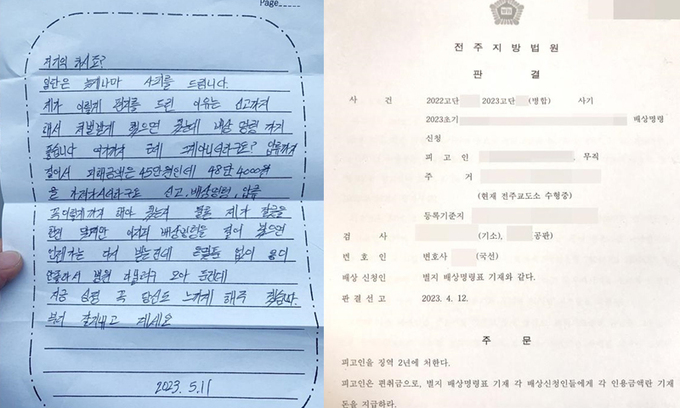 Page
저기억 하시죠?
일단은 늦게나마 사죄를 드립니다.
제가 이렇게 편지를 드린 이유는 신고까지
해서 처벌받게 됐으면 됐는데 배상 명령 까지
좋습니다 여기까지 근데 그게아니더라구요? 압류까지
걸어서 피해금액은 45만원인데 48만 4000원
을 신고, 배상명령, 압류
꼭이렇게까지 해야 됐는지 물론 제가 잘못을
한건 맞지만 배상명령을 걸어 놨으면
언젠가는 다시 받는건데 없이
법원
지금 심정 꼭 당신도 느끼게 해주 겠습니다.
부디 잘지내고 계세요
2023. 5. 11
전 주 지 방 법 원
판 결
사 건 2022고단 2023고단 (병합) 사기
2023초기 배상명령
신청
피 고 인 , 무직
주 거
(현재 전주교도소 수형중)
등록기준지
검 사 (기소), 공판)
변 호 인 변호사 (국선)
배상 신청인 별지 배상명령표 기재와 같다.
판 결 선 고 2023. 4. 12.
주 문
피고인을 징역 2년에 처한다.
피고인은 편취금으로, 별지 배상명령표 기재 각 배상신청인들에게 각 인용금액란 기재
돈을 지급하라.